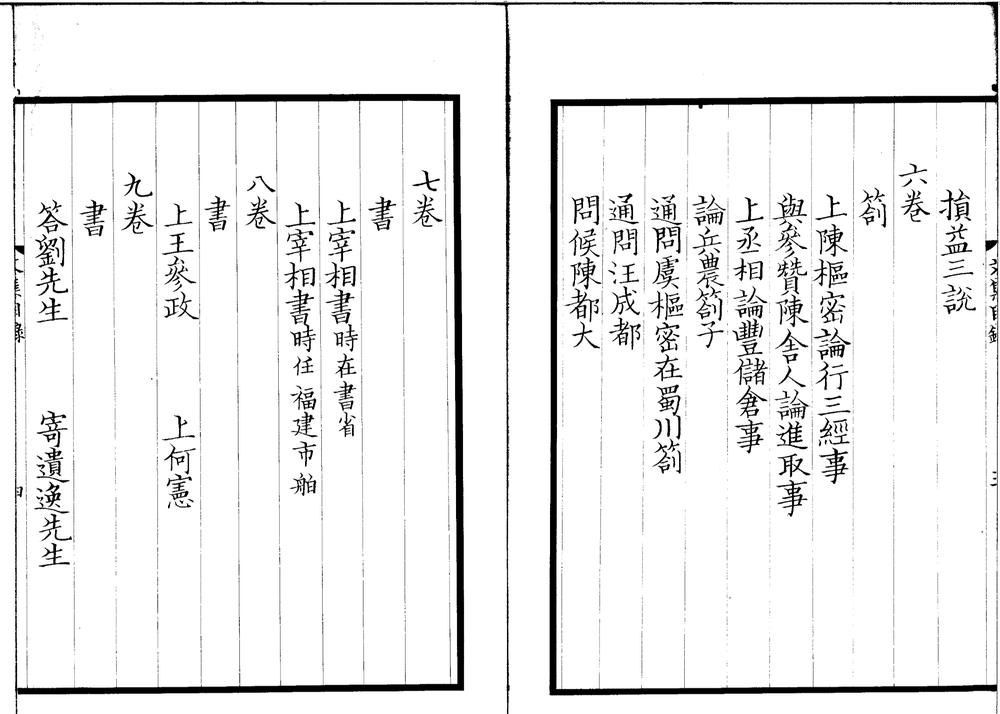 損益三說
六卷
劄
上陳樞密論行三經事
與參贊陳舍人論進取事
上丞相論豐儲倉事
論兵農劄子
通問虞樞密在蜀川劄
通問汪成都
問候陳都大
三
七卷
書
上宰相書時在書省
上宰相書時任福建市舶
八卷
書
上王參政 上何憲
九卷
書
答劉先生 寄遺逸先生
集目錄
四